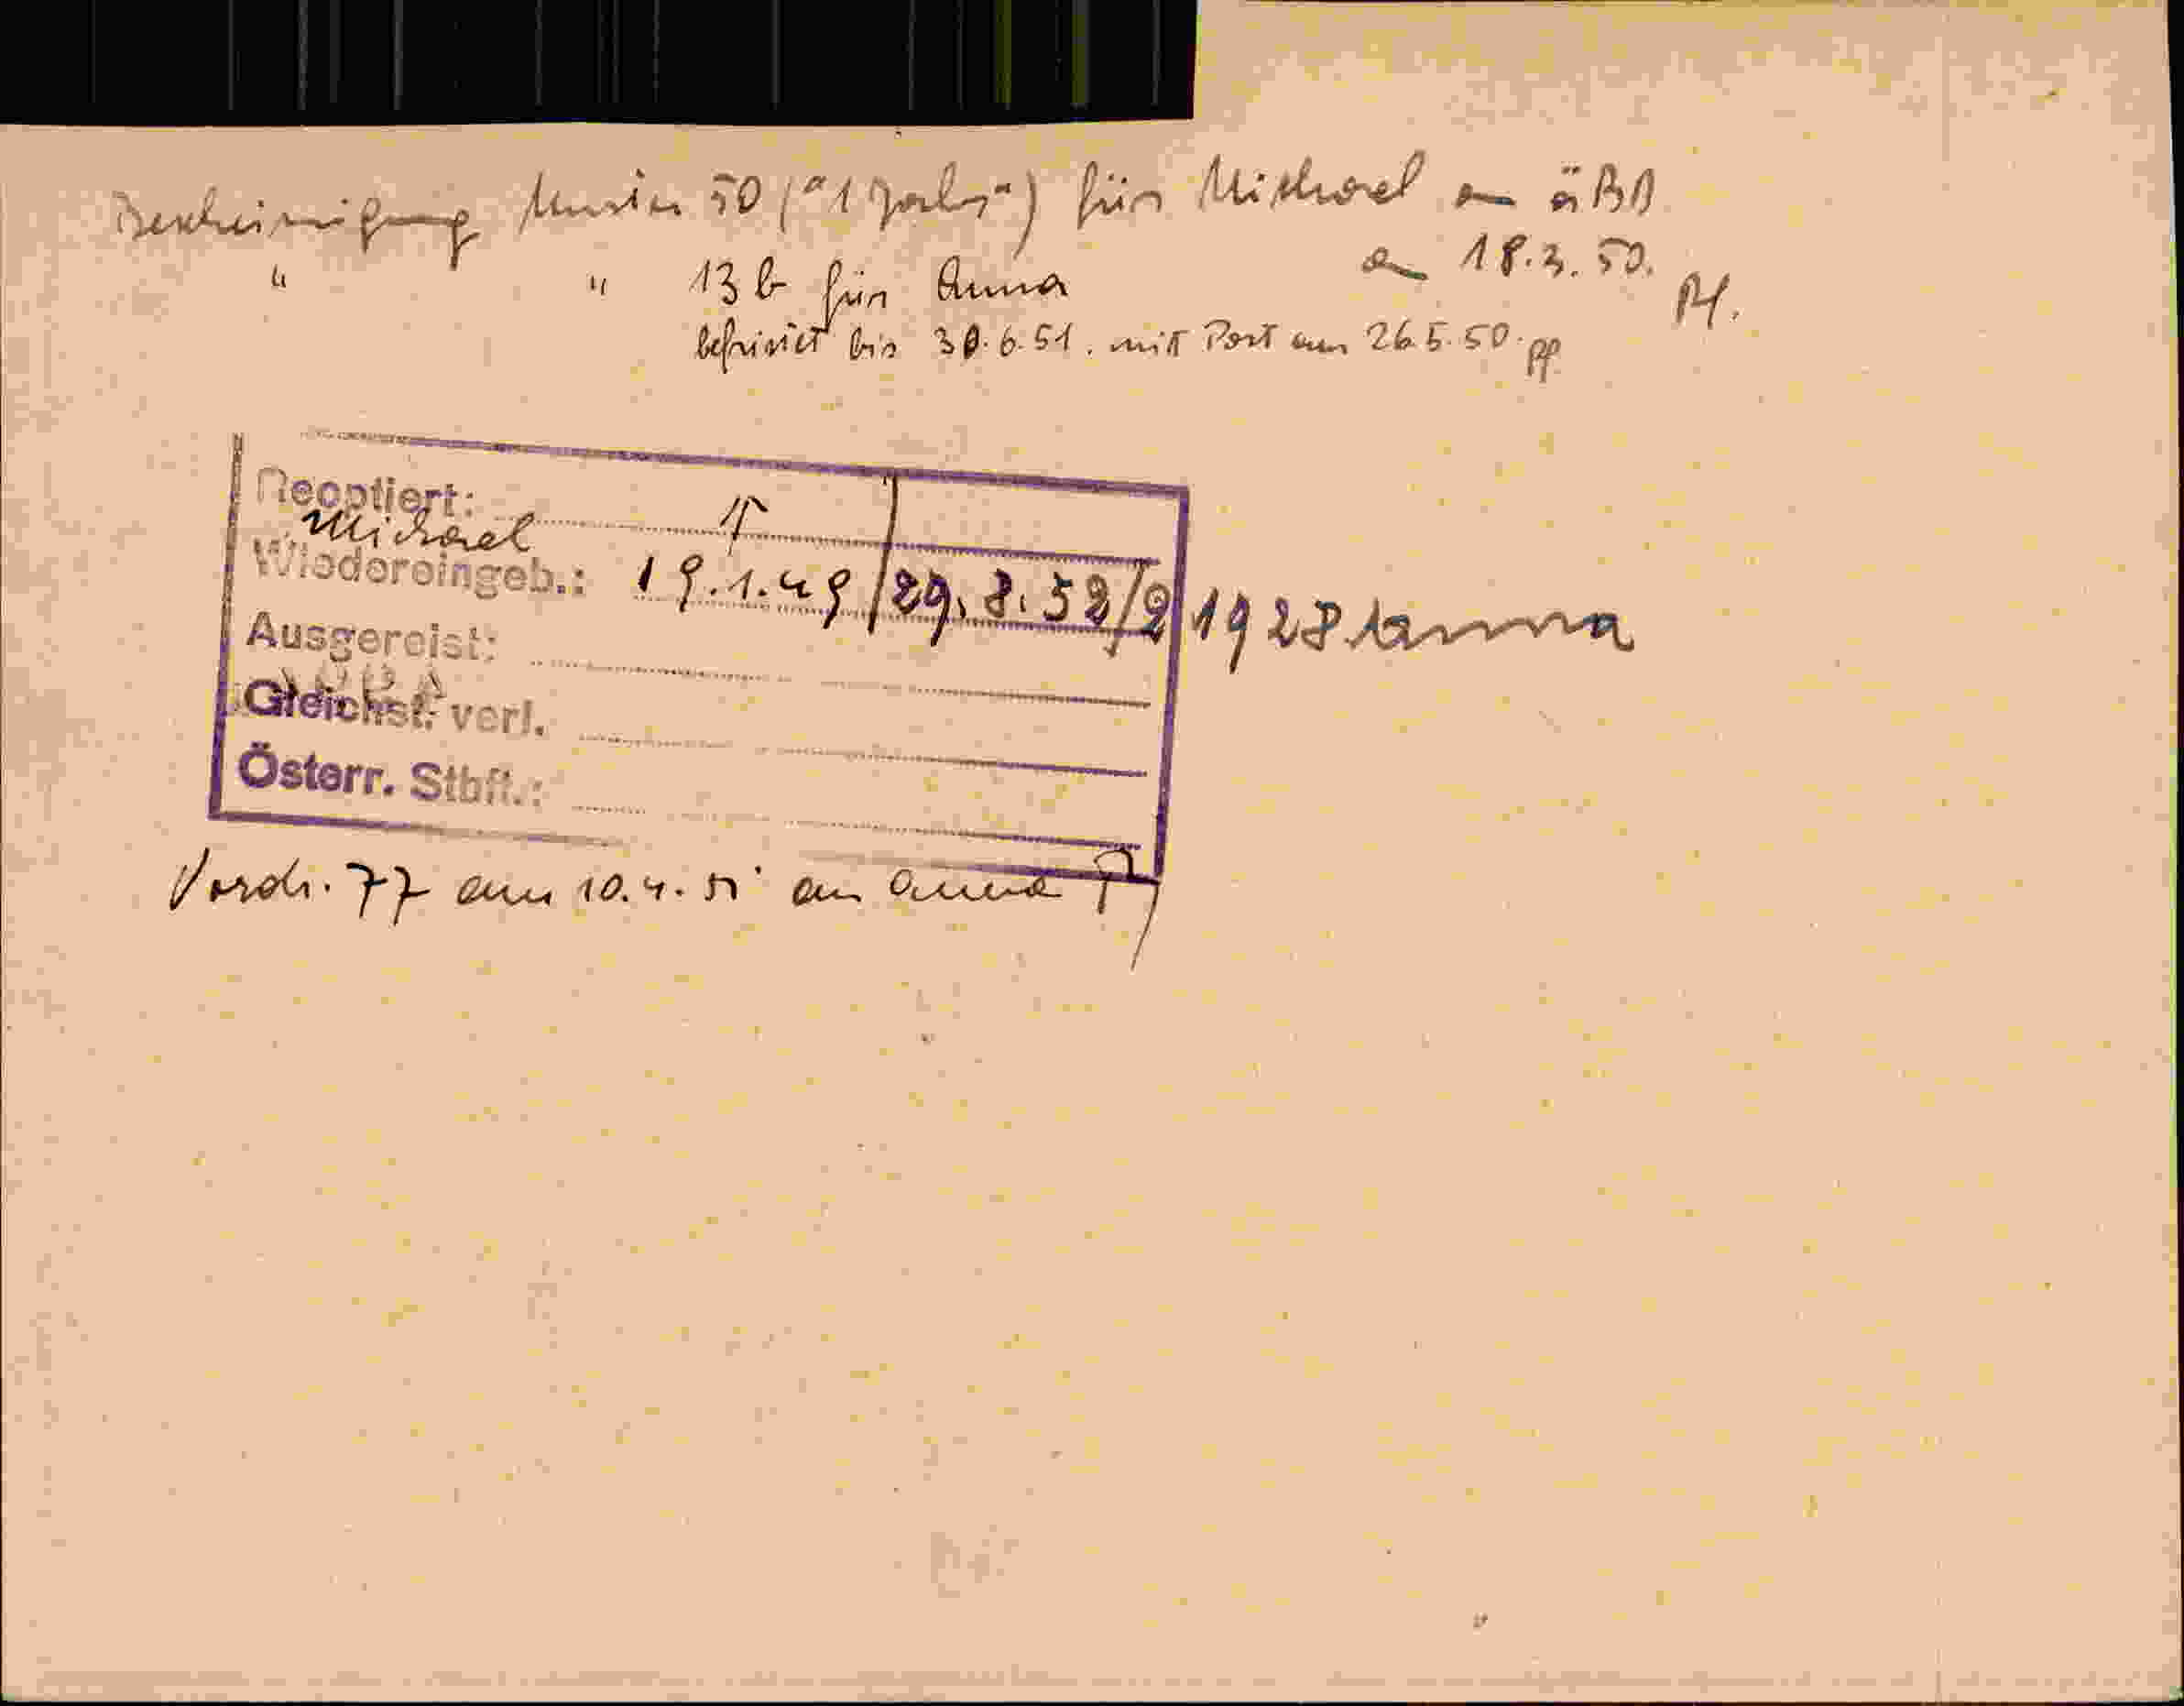 Bescheinigung Muster 50 ("1 Jahr") für Michael an öBB
an 18.3.50.
" " 13 b für Anna
befristet bis 30.6.51. mit Post am 26.5.50.
Reoptiert:
Michael
Wiedereingeb.: 19.1.49 / 29.8.52/2 1928 Anna
Ausgereist:
Gleichst. verl.
Österr. Stbft.:
Vordr. 77 am 10.4.51 an Anna